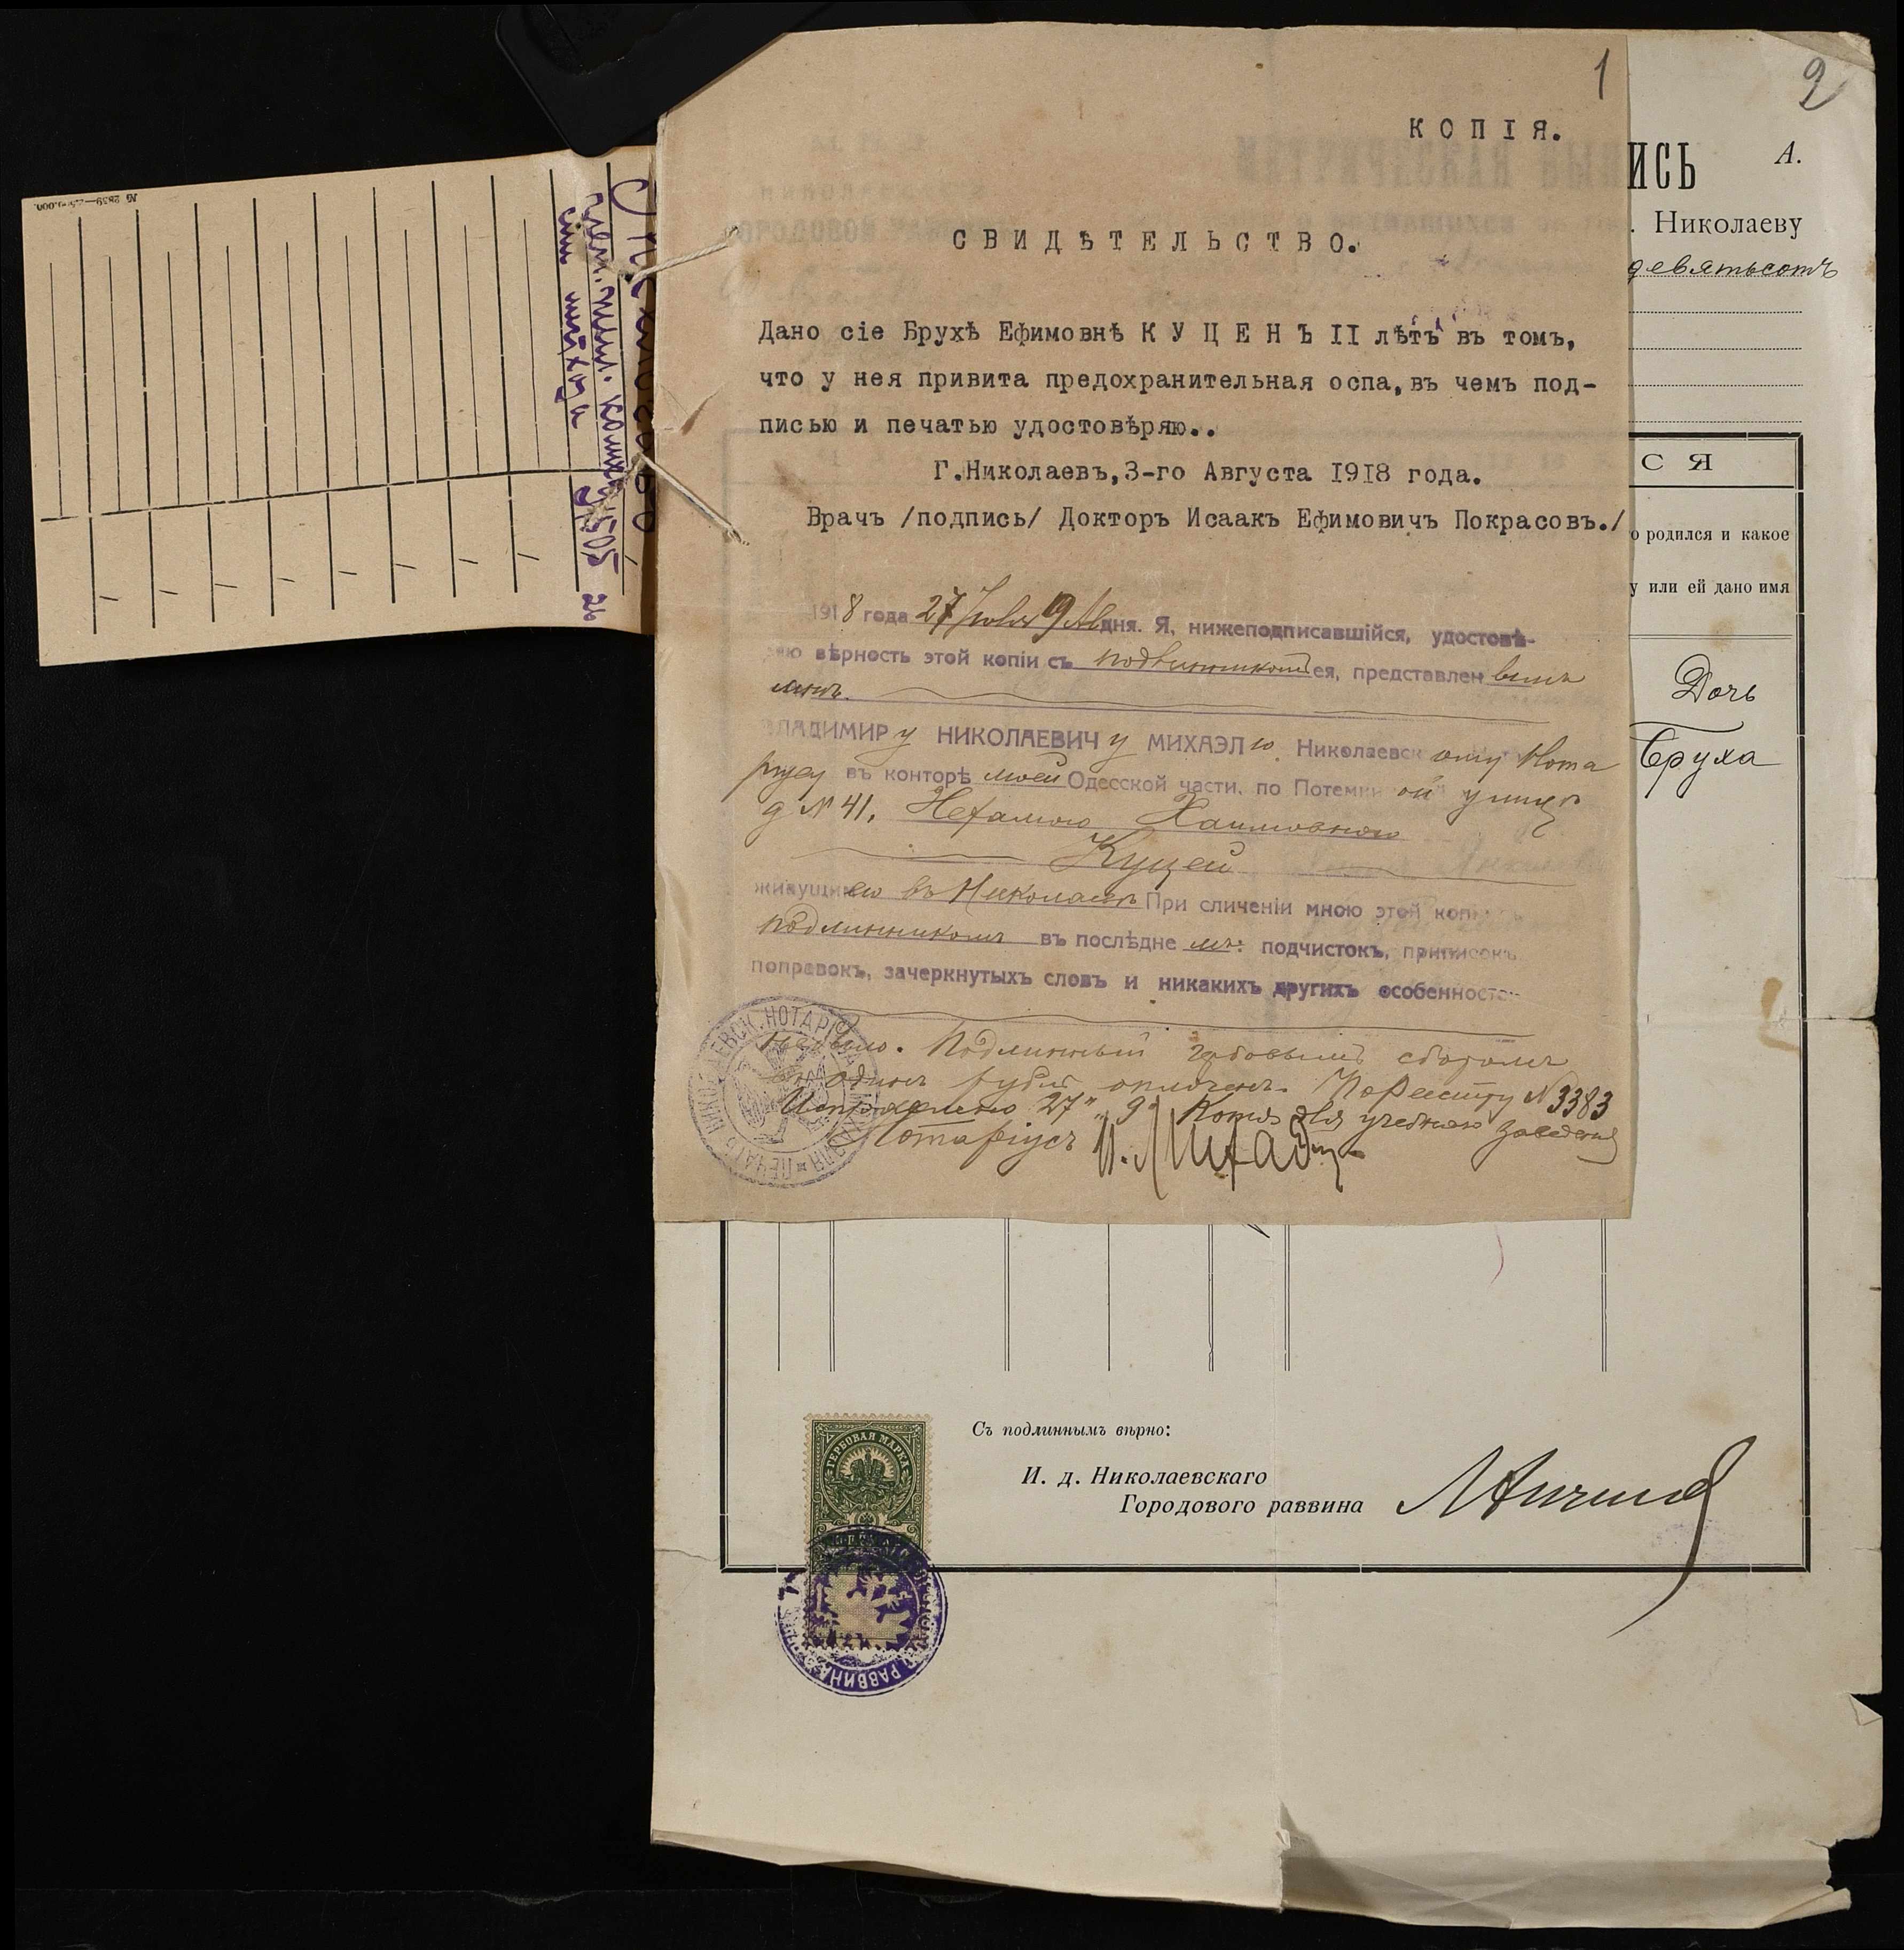 1
КОПІЯ.
СВИДѢТЕЛЬСТВО.
Дано сіе Брухѣ Ефимовнѣ К У Ц Е Н Ъ II лѣтъ въ томъ,
что у нея привита предохранительная оспа,въ чемъ под-
писью и печатью удостовѣряю..
Г.Николаевъ,3-го Августа 1918 года.
Врачъ /подпись/ Докторъ Исаакъ Ефимовичъ Покрасовъ./
1918 года 27 Іюля 9 Ав дня. Я, нижеподписавшійся, удостовѣ-
ряю вѣрность этой копіи съ подлинникомъ ея, представленнымъ
мнѣ.
ВЛАДИМИРу НИКОЛАЕВИЧу МИХАЭЛю Николаевскому Нота
ріусу въ конторѣ моей Одесской части, по Потемкинской улицѣ
д № 41, Нехамою Хаимовною
Куцей
живущею въ Николаевѣ При сличеніи мною этой копіи съ
подлинникомъ въ послѣднемъ: подчистокъ, приписокъ
поправокъ, зачеркнутыхъ словъ и никакихъ другихъ особенностей
не было. Подлинный гербовымъ сборомъ
въ одинъ рубль оплаченъ. По Реестру № 3383
Исправлено "27" "9" Копія для учебнаго заведенія
Нотаріусъ
2
ИСЬ А.
. Николаеву
девятьсотъ
С Я
о родился и какое
у или ей дано имя
Дочь
Бруха
ГЕРБОВАЯ МАРКА
Съ подлиннымъ вѣрно:
И. д. Николаевскаго
Городового раввина
РАВВИНА
№ 2859